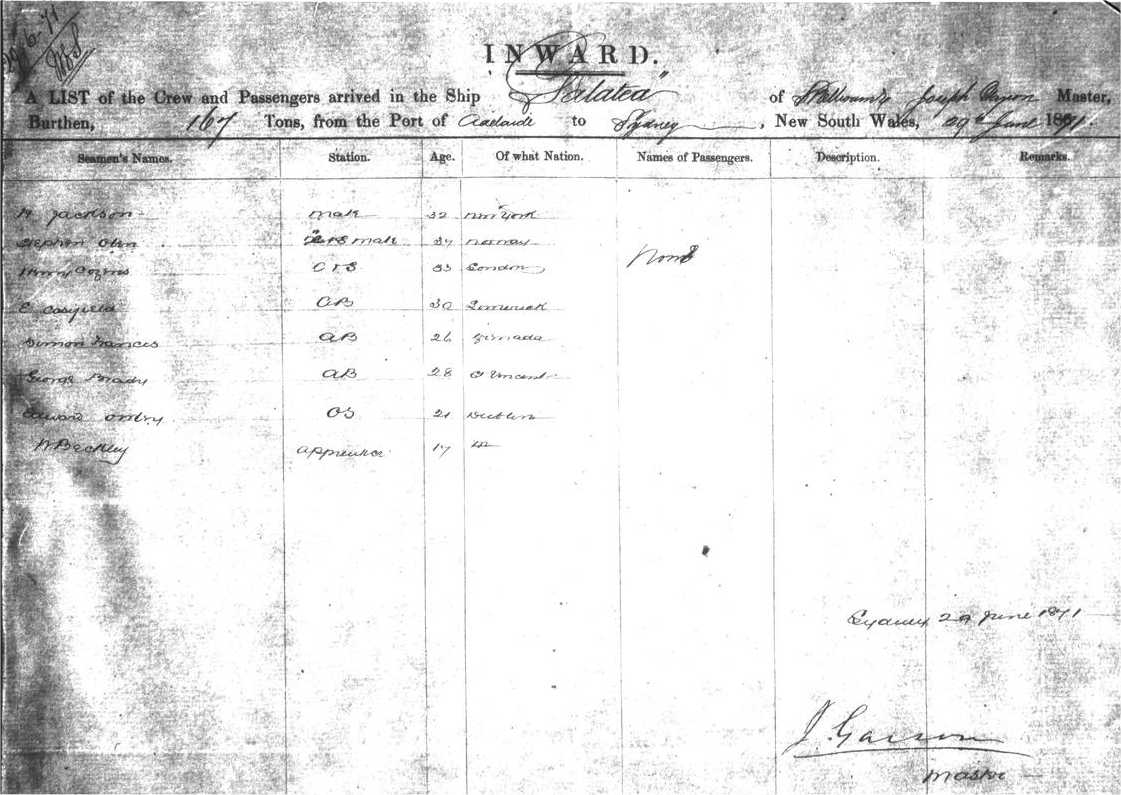 29/6/71
INWARD.
A LIST of the Crew and Passengers arrived in the Ship "Galatea" of Joseph Master,
Burthen, 167 Tons, from the Port of Adelaide to Sydney, New South Wales, 29th June 1871.
Seamen's Names. Station. Age. Of what Nation. Names of Passengers. Description. Remarks.
Jackson Mate 32 New York
Stephen Olsen 2nd Mate Norway
C & S London None
E AB 30 Limerick
Simon Francis AB 26 Grinada
George Brady AB 28 St Vincent
Edward OS 21 Dublin
W Beckley Apprentice 17
Sydney 29 June 1871
J. Garson
Master